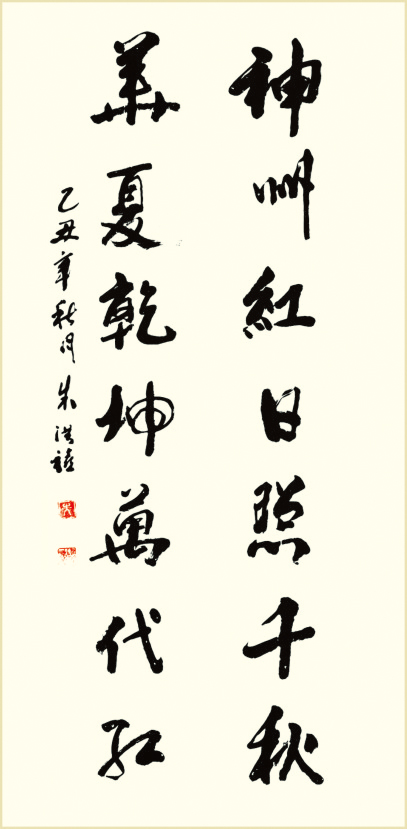 神州紅日照千秋
華夏乾坤萬代红
乙丑年秋月 朱洪禧